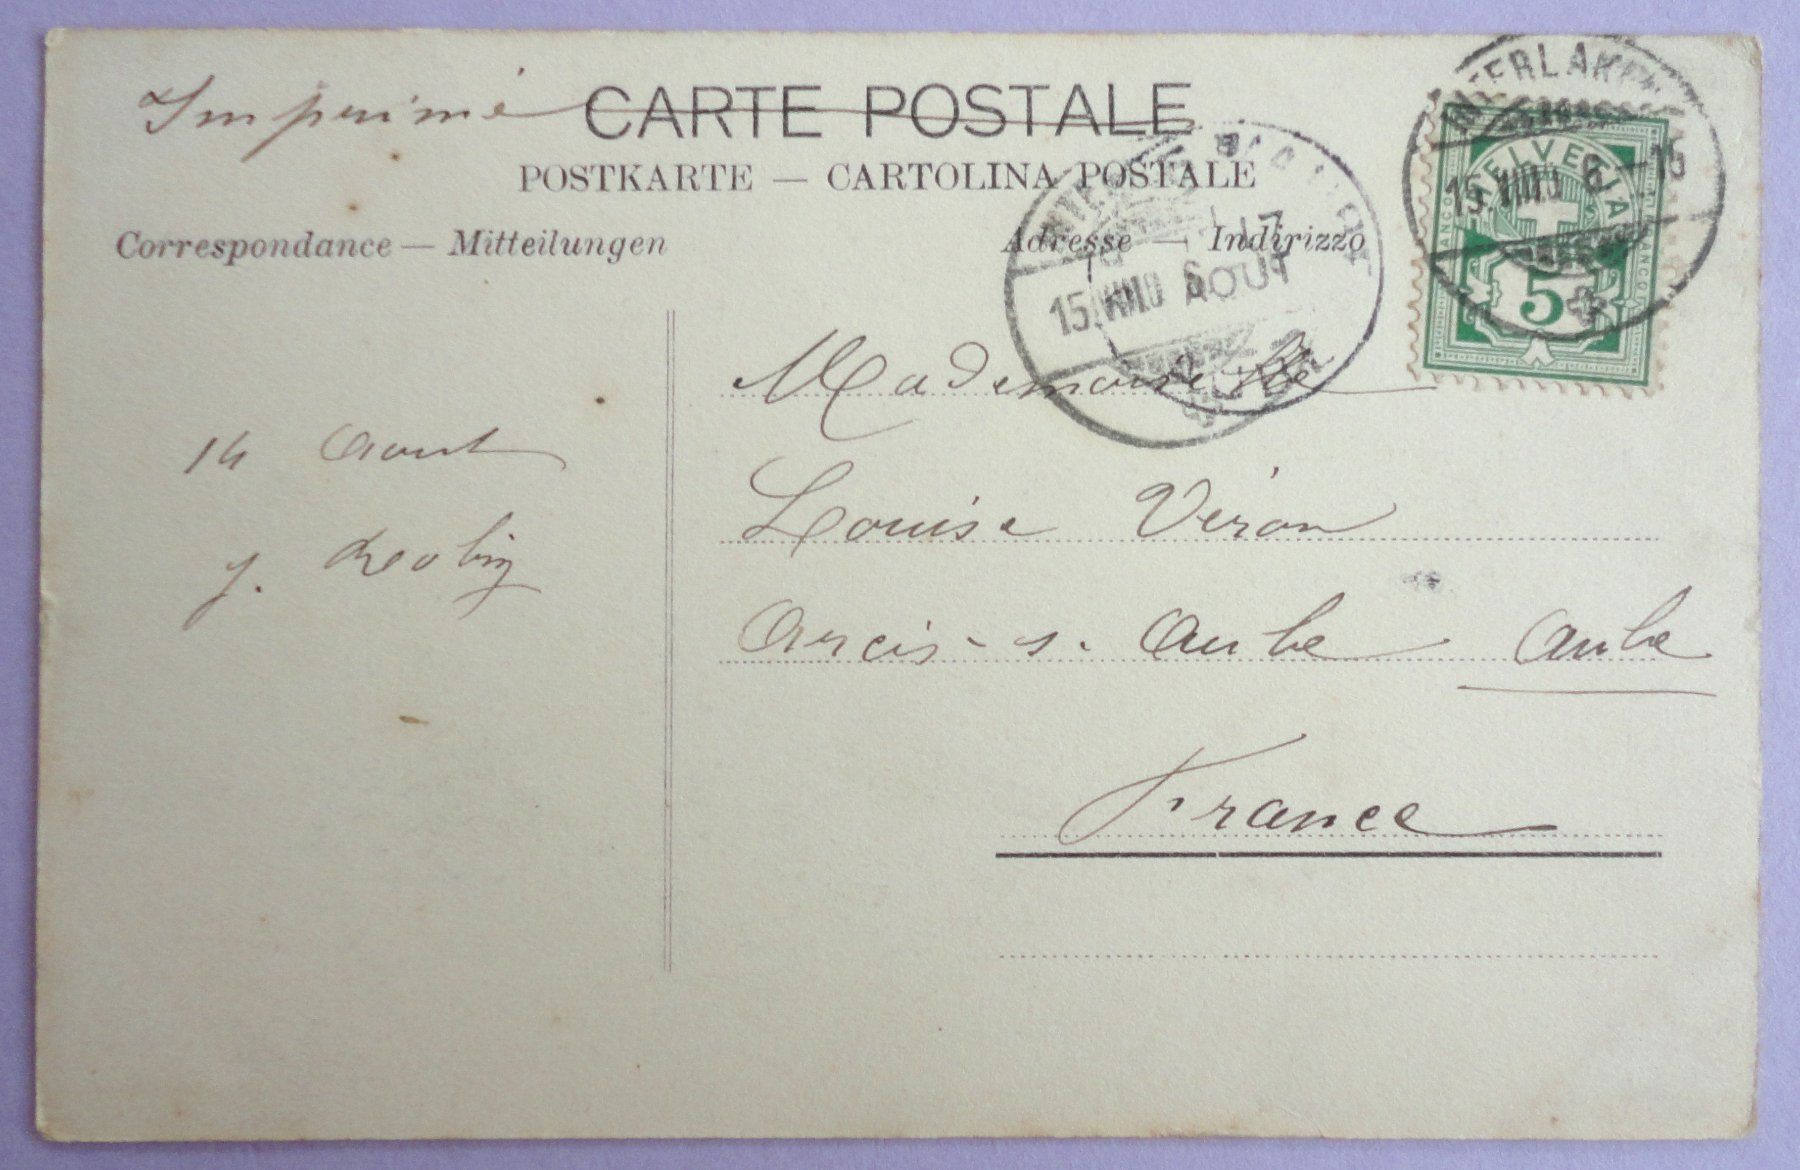 Imprimé CARTE POSTALE
POSTKARTE — CARTOLINA POSTALE
Correspondance — Mitteilungen
Adresse — Indirizzo
INTERLAKEN
15.VIII.10 6-15
HELVETIA
FRANCO
FRANCO
5
15.VIII.10 6
AOUT
Mademoiselle
Louise Véron
Arcis-s. Aube Aube
France
14 Aout
J.